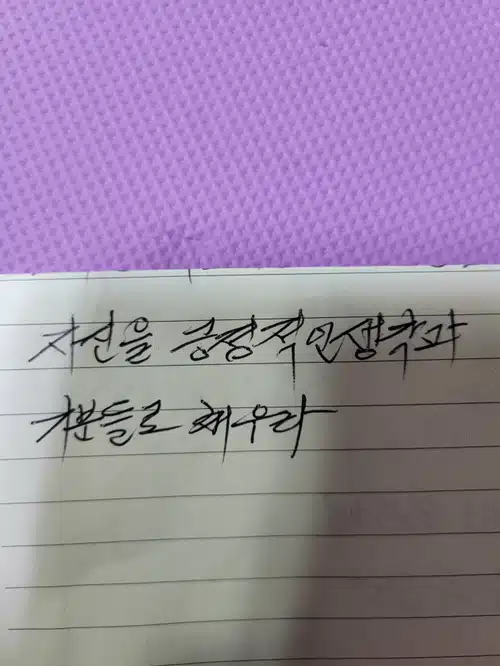 자신을 긍정적인 생각과
기쁨들로 채우라